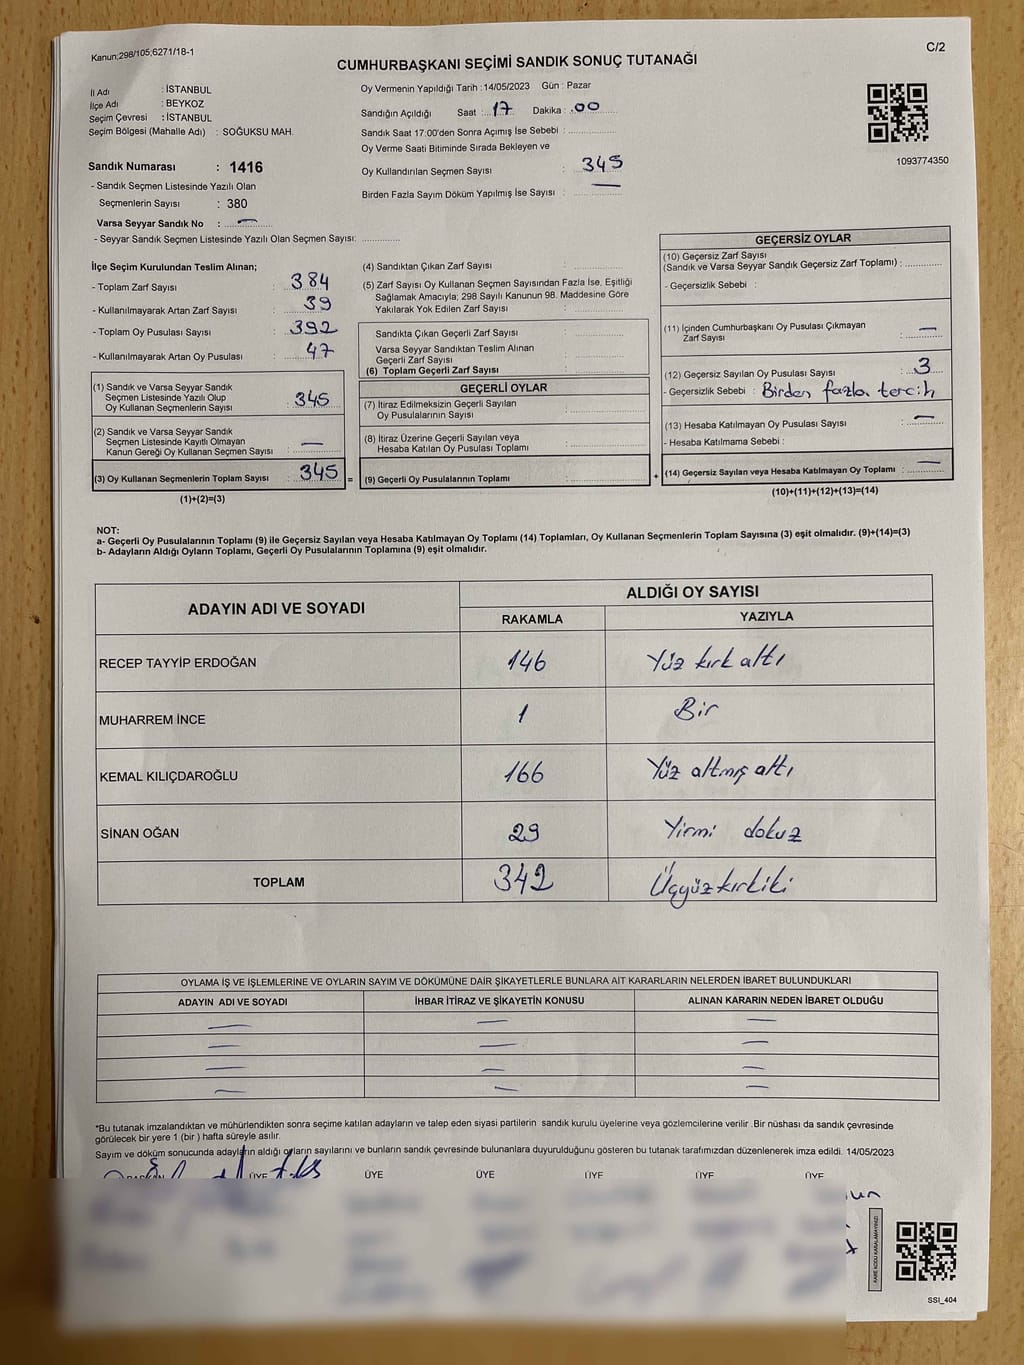 Kanun;298/105;6271/18-1
C/2
CUMHURBAŞKANI SEÇİMİ SANDIK SONUÇ TUTANAĞI
İl Adı : İSTANBUL
İlçe Adı : BEYKOZ
Seçim Çevresi : İSTANBUL
Seçim Bölgesi (Mahalle Adı) : SOĞUKSU MAH.
Oy Vermenin Yapıldığı Tarih : 14/05/2023 Gün : Pazar
Sandığın Açıldığı Saat : 17 Dakika : 00
Sandık Saat 17:00'den Sonra Açımış İse Sebebi :
Oy Verme Saati Bitiminde Sırada Bekleyen ve
Oy Kullandırılan Seçmen Sayısı : 345
Birden Fazla Sayım Döküm Yapılmış İse Sayısı : —
1093774350
Sandık Numarası : 1416
- Sandık Seçmen Listesinde Yazılı Olan
Seçmenlerin Sayısı : 380
Varsa Seyyar Sandık No : —
- Seyyar Sandık Seçmen Listesinde Yazılı Olan Seçmen Sayısı:
İlçe Seçim Kurulundan Teslim Alınan;
- Toplam Zarf Sayısı : 384
- Kullanılmayarak Artan Zarf Sayısı : 39
- Toplam Oy Pusulası Sayısı : 392
- Kullanılmayarak Artan Oy Pusulası : 47
(1) Sandık ve Varsa Seyyar Sandık
Seçmen Listesinde Yazılı Olup
Oy Kullanan Seçmenlerin Sayısı : 345
(2) Sandık ve Varsa Seyyar Sandık
Seçmen Listesinde Kayıtlı Olmayan
Kanun Gereği Oy Kullanan Seçmen Sayısı : —
(3) Oy Kullanan Seçmenlerin Toplam Sayısı : 345 =
(1)+(2)=(3)
(4) Sandıktan Çıkan Zarf Sayısı :
(5) Zarf Sayısı Oy Kullanan Seçmen Sayısından Fazla İse, Eşitliği
Sağlamak Amacıyla; 298 Sayılı Kanunun 98. Maddesine Göre
Yakılarak Yok Edilen Zarf Sayısı :
Sandıkta Çıkan Geçerli Zarf Sayısı :
Varsa Seyyar Sandıktan Teslim Alınan
Geçerli Zarf Sayısı :
(6) Toplam Geçerli Zarf Sayısı :
GEÇERLİ OYLAR
(7) İtiraz Edilmeksizin Geçerli Sayılan
Oy Pusulalarının Sayısı :
(8) İtiraz Üzerine Geçerli Sayılan veya
Hesaba Katılan Oy Pusulası Toplamı :
(9) Geçerli Oy Pusulalarının Toplamı : +
GEÇERSİZ OYLAR
(10) Geçersiz Zarf Sayısı
(Sandık ve Varsa Seyyar Sandık Geçersiz Zarf Toplamı) :
- Geçersizlik Sebebi :
(11) İçinden Cumhurbaşkanı Oy Pusulası Çıkmayan
Zarf Sayısı : —
(12) Geçersiz Sayılan Oy Pusulası Sayısı : 3
- Geçersizlik Sebebi : Birden fazla tercih
(13) Hesaba Katılmayan Oy Pusulası Sayısı : —
- Hesaba Katılmama Sebebi :
(14) Geçersiz Sayılan veya Hesaba Katılmayan Oy Toplamı : —
(10)+(11)+(12)+(13)=(14)
NOT:
a- Geçerli Oy Pusulalarının Toplamı (9) ile Geçersiz Sayılan veya Hesaba Katılmayan Oy Toplamı (14) Toplamları, Oy Kullanan Seçmenlerin Toplam Sayısına (3) eşit olmalıdır. (9)+(14)=(3)
b- Adayların Aldığı Oyların Toplamı, Geçerli Oy Pusulalarının Toplamına (9) eşit olmalıdır.
ADAYIN ADI VE SOYADI ALDIĞI OY SAYISI
RAKAMLA YAZIYLA
RECEP TAYYİP ERDOĞAN 146 Yüz kırk altı
MUHARREM İNCE 1 Bir
KEMAL KILIÇDAROĞLU 166 Yüz altmış altı
SİNAN OĞAN 29 Yirmi dokuz
TOPLAM 342 Üçyüzkırkiki
OYLAMA İŞ VE İŞLEMLERİNE VE OYLARIN SAYIM VE DÖKÜMÜNE DAİR ŞİKAYETLERLE BUNLARA AİT KARARLARIN NELERDEN İBARET BULUNDUKLARI
ADAYIN ADI VE SOYADI İHBAR İTİRAZ VE ŞİKAYETİN KONUSU ALINAN KARARIN NEDEN İBARET OLDUĞU
— — —
— — —
— — —
— — —
*Bu tutanak imzalandıktan ve mühürlendikten sonra seçime katılan adayların ve talep eden siyasi partilerin sandık kurulu üyelerine veya gözlemcilerine verilir .Bir nüshası da sandık çevresinde
görülecek bir yere 1 (bir ) hafta süreyle asılır.
Sayım ve döküm sonucunda adayların aldığı oyların sayılarını ve bunların sandık çevresinde bulunanlara duyurulduğunu gösteren bu tutanak tarafımızdan düzenlenerek imza edildi. 14/05/2023
BAŞKAN ÜYE ÜYE ÜYE ÜYE ÜYE ÜYE
KARE KODU KARALAMAYINIZ!
SSI_404